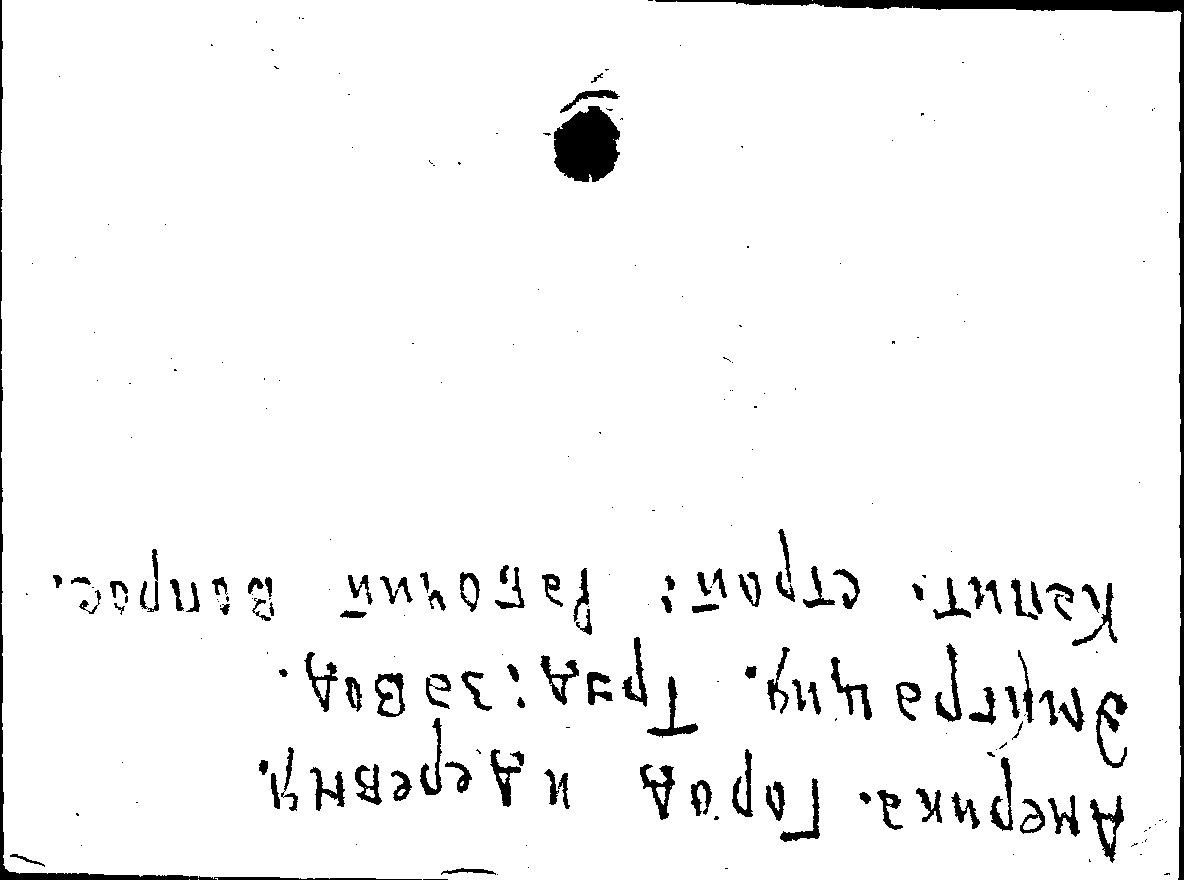 Америка. Город и деревня.
Эмиграция. Труд: завод.
Капит. строй: Рабочий вопрос.